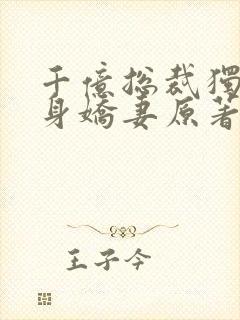 千億総裁獨
身嬌妻原著
王子今